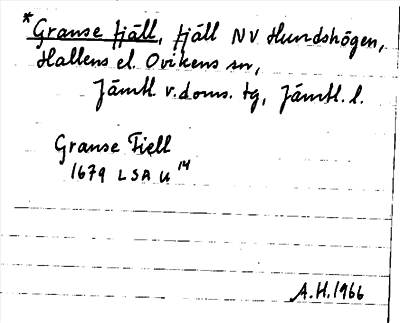 *Granse fjäll, fjäll NV Hundshögen,
Hallens el. Ovikens sn,
Jämtl. v. doms. tg, Jämtl. l.
Granse Fiell
1679 LSA U 14
A.H. 1966